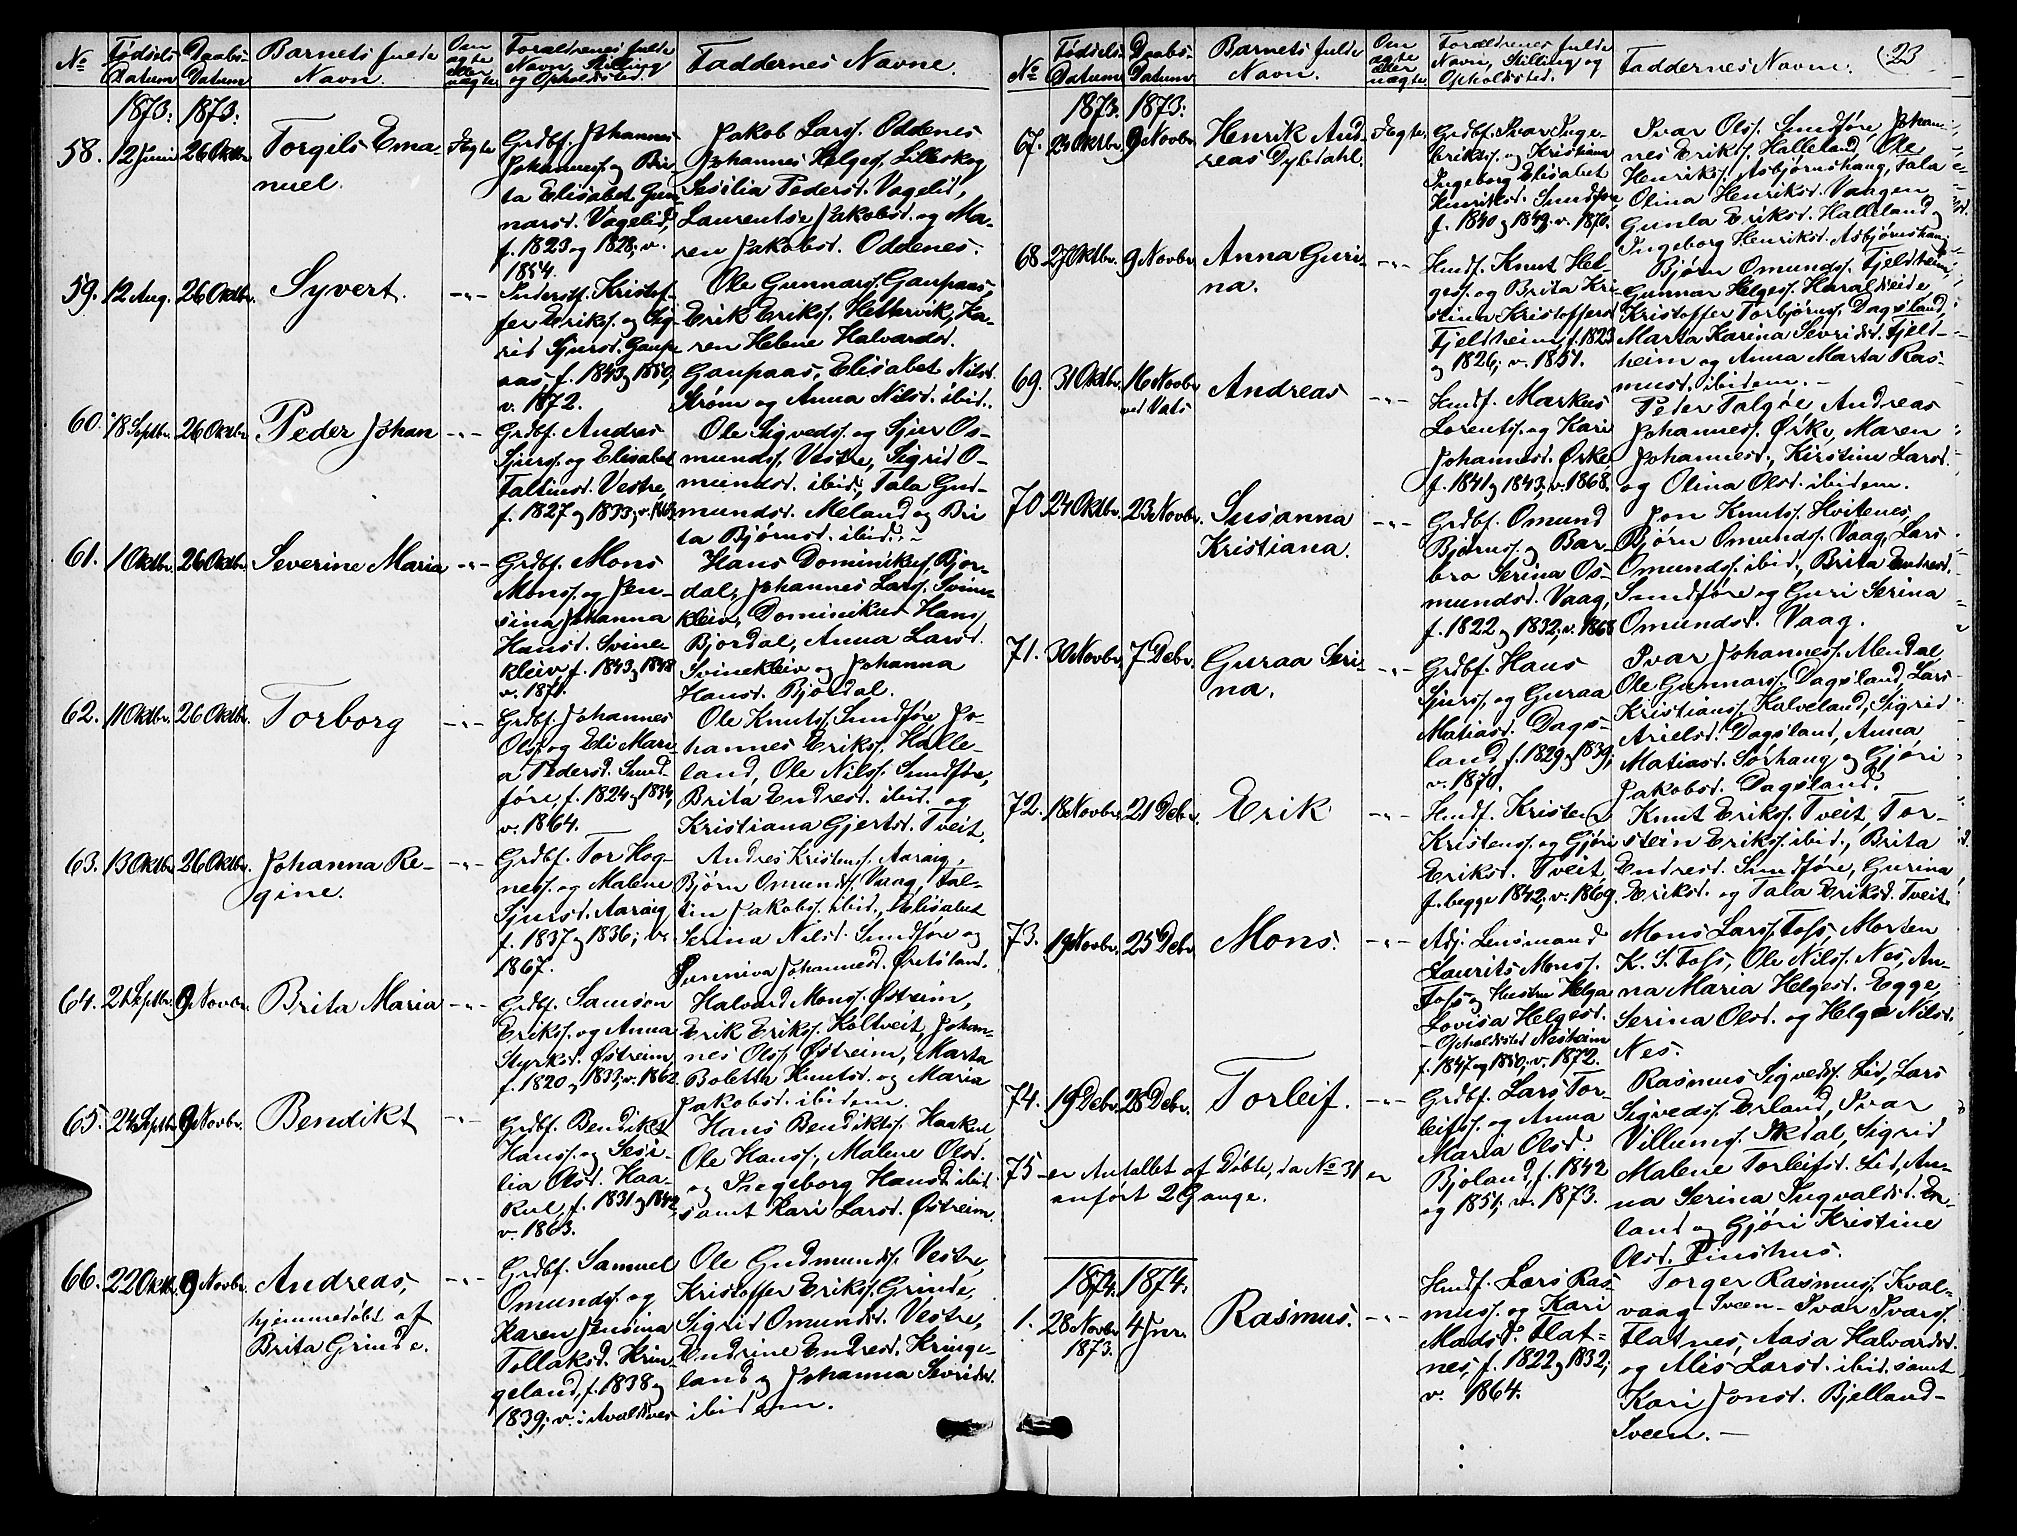 № Fødsels Datum Daabs Datum Barnets fulde Navn. Om ægte eller uægte Forældrenes fulde Navn, Stilling og Opholdssted. Faddernes Navne.
1873. 1873.
58. 12 Juni 26 Oktbr. Torgils Ema-
nuel.
Ægte
Grdbf. Johannes
Johanness. og Bri-
ta Elisabet Gun-
narsd. Vagelid,
f. 1823 og 1828, v.
1854.
Jakob Larss. Oddenes
Johannes Helges. Lilleskog
Sesilia Pedersd. Vagelid,
Laurentse Jakobsd. og Ma-
ren Jakobsd. Oddenes.
59. 12 Aug. 26 Oktbr. Syvert.
-"-
Inderstf. Kristof-
fer Erikss. og Sig-
rid Sjursd. Gaup-
aas, f. 1843 og 1850,
v. 1872.
Ole Gunnarss. Gaupaas,
Erik Erikss. Hettervik, Ka-
ren Helene Halvardsd.
Gaupaas, Elisabet Nilsd.
Strøm og Anna Nilsd. ibid.
60. 18 Septbr. 26 Oktbr. Peder Johan
-"-
Grdbf. Andres
Sjurss. og Elisabet
Faltinsd. Vestre,
f. 1827 og 1833, v. 1863.
Ole Sigveds. og Sjur Os-
munds. Vestre, Sigrid O-
mundsd. ibid., Tala Gud-
mundsd. Meland og Bri
ta Bjørnsd. ibid.
61. 1 Oktbr. 26 Oktbr. Severine Maria
-"-
Grdbf. Mons
Monss. og Jen-
sina Johanna
Hansd. Svine-
kleiv, f. 1843 og 1848
v. 1871.
Hans Dominikus. Bjor-
dal, Johannes Larss. Svine-
kleiv, Dominikus Hans.
Bjordal, Anna Larsd.
Svinekleiv og Johanna
Hansd. Bjordal.
62. 11 Oktbr. 26 Oktbr. Torborg
-"-
Grdbf. Johannes
Olss. og Edi Mari-
a Pedersd. Sund-
føre, f. 1824 og 1834,
v. 1864.
Ole Knutss. Sundføre, Jo-
hannes Erikss. Halle-
land, Ole Nilss. Sundføre,
Brita Endresd. ibid. og
Kristiana Gjertsd. Tveit.
63. 13 Oktbr. 26 Oktbr. Johanna Re-
gine.
-"-
Grdbf. Tor Hog-
ness. og Malene
Sjursd. Aaraig,
f. 1837 og 1836, v.
1867.
Andres Kristens. Aaraig,
Bjørn Omunds. Vaag, Fal-
tin Jakobs. ibid., Elisabet
Serina Nilsd. Sundføre og
Sunniva Johannesd. Øretsland.
64. 21 Septbr. 9 Novbr. Brita Maria
-"-
Grdbf. Samson
Erikss. og Anna
Styrksd. Østreim,
f. 1820 og 1833, v. 1862.
Halvard Monss. Østreim,
Erik Erikss. Koltveit, Johan-
nes Olss. Østreim, Marta
Boletta Knutsd. og Maria
Jakobsd. ibidem.
65. 24 Septbr. 9 Novbr. Bendikt
-"-
Grdbf. Bendikt
Hanss. og Sesi-
lia Olsd. Haa-
kul, f. 1831 og 1842,
v. 1863.
Hans Bendiktss. Haakul
Ole Hanss., Malene Olsd.
og Ingeborg Hansd. ibid.
samt Kari Larsd. Østreim.
66. 22 Oktbr. 9 Novbr. Andreas,
hjemmedøbt af
Brita Grinde.
-"-
Grdbf. Samuel
Omundss. og
Karen Jensina
Tollaksd. Krin-
geland, f. 1838 og
1839, v. i Avaldsnes
Ole Gudmunds. Vestre,
Kristoffer Erikss. Grinde,
Sigrid Omundsd. Vestre,
Endrine Endresd. Kringe-
land og Johanna Sevridsd.
ibidem.
№ Fødsels Datum Daabs Datum. Barnets fulde Navn. Om ægte eller uægte. Forældrenes fulde Navn, Stilling og Opholdssted. Faddernes Navne. 23
1873. 1873.
67. 25 Oktbr. 9 Novbr. Henrik And-
reas Dybdahl.
Ægte.
Grdbf. Ivar Inge-
briktss. og Kristiana
Ingeborg Elisabet
Henriksd. Sundføre
f. 1840 og 1849, v. 1870.
Ivar Olss. Sundføre, Johan-
nes Erikss. Halleland, Ole
Henrikss. Asbjørnshaug, Tala
Olina Henriksd. Vaagen,
Gunla Eriksd. Halleland og
Ingeborg Henriksd. Asbjørnshaug
68. 27 Oktbr. 9 Novbr. Anna Guri-
na.
-"-
Husf. Knut Hel-
gess. og Brita Kri-
stina Kristoffersd.
Fjeldheim, f. 1823
og 1826, v. 1851.
Bjørn Omundss. Fjeldheim,
Gunnar Helgess. Haraldseide,
Kristoffer Torbjørns. Dagsland,
Marta Karina Sevridsd. Fjeld-
heim og Anna Marta Ras-
musd. ibidem.
69. 31 Oktbr. 16 Novbr. Andreas
ved Vats
-"-
Husf. Markus
Lorentss. og Kari
Johannesd. Ørke,
f. 1841 og 1843, v. 1868.
Peder Talgøe, Andreas
Johanness. Ørke, Maren
Johannesd., Kirstine Larsd.
og Olina Olsd. ibidem.
70. 24 Oktbr. 23 Novbr. Susanna
Kristiana.
-"-
Grdbf. Omund
Bjørnss. og Bar-
bro Serina Os-
mundsd. Vaag,
f. 1822 og 1832, v. 1868
Jon Knutss. Hvitenes,
Bjørn Omundss. Vaag, Lars
Omundss. ibid., Brita Endresd.
Sundføre og Guri Serina
Omundsd. Vaag.
71. 30 Novbr. 7 Debr. Guraa Seri-
na.
-"-
Grdbf. Hans
Sjurss. og Guraa
Matiasd. Dags-
land, f. 1829 og 1839,
v. 1870.
Ivar Johanness. Mendal
Ole Gunnarss. Dagsland, Lars
Kristians. Halveland, Sigrid
Arielsd. Dagsland, Anna
Matiasd. Sørhaug og Gjøri
Jakobsd. Dagsland.
72. 18 Novbr. 21 Debr. Erik
-"-
Husf. Kristen
Kristenss. og Gjøri
Eriksd. Tveit,
f. begge 1842, v. 1869.
Knut Erikss. Tveit, Tor-
stein Erikss. ibid., Brita
Endresd. Sundføre, Gurina
Eriksd. og Tala Eriksd. Tveit.
73. 19 Novbr. 25 Debr. Mons.
-"-
Adj. Lensmand
Laurits Monss.
Foss og Hustru Helga
Lovisa Helgesd.
- Opholdssted Nesheim
f. 1847 og 1850, v. 1872.
Mons Larss. Foss, Morten
K. S. Foss, Ole Nilss. Nes, An-
na Maria Helgesd. Egge,
Serina Olsd. og Helga Nilsd.
Nes.
74. 19 Debr. 28 Debr. Torleif.
-"-
Grdbf. Lars Tor-
leifss. og Anna
Maria Olsd.
Bjoland, f. 1842
og 1851, v. 1873.
Rasmus Sigveds. Lid, Lars
Sigveds. Erland, Ivar
Villums. Økdal, Sigrid
Malene Torleifsd. Lid, An-
na Serina Ingvaldsd. Er-
land og Gjøri Kristine
Olsd. Finshus.
75 er Antallet af Døbte, da № 31 er
anført 2 Gange.
1874. 1874.
1. 28 Novbr. 4 Jnr. Rasmus.
1873.
-"-
Husf. Lars Ras-
muss. og Kari
Madsd. Flat-
nes, f. 1822 og 1832,
v. 1864.
Torger Rasmuss. Kval-
vaag-Sveen- Ivar Ivarss.
Flatnes, Aasa Halvardsd.
og Alis Larsd. ibid. samt
Kari Jonsd. Bjelland-
Sveen. -